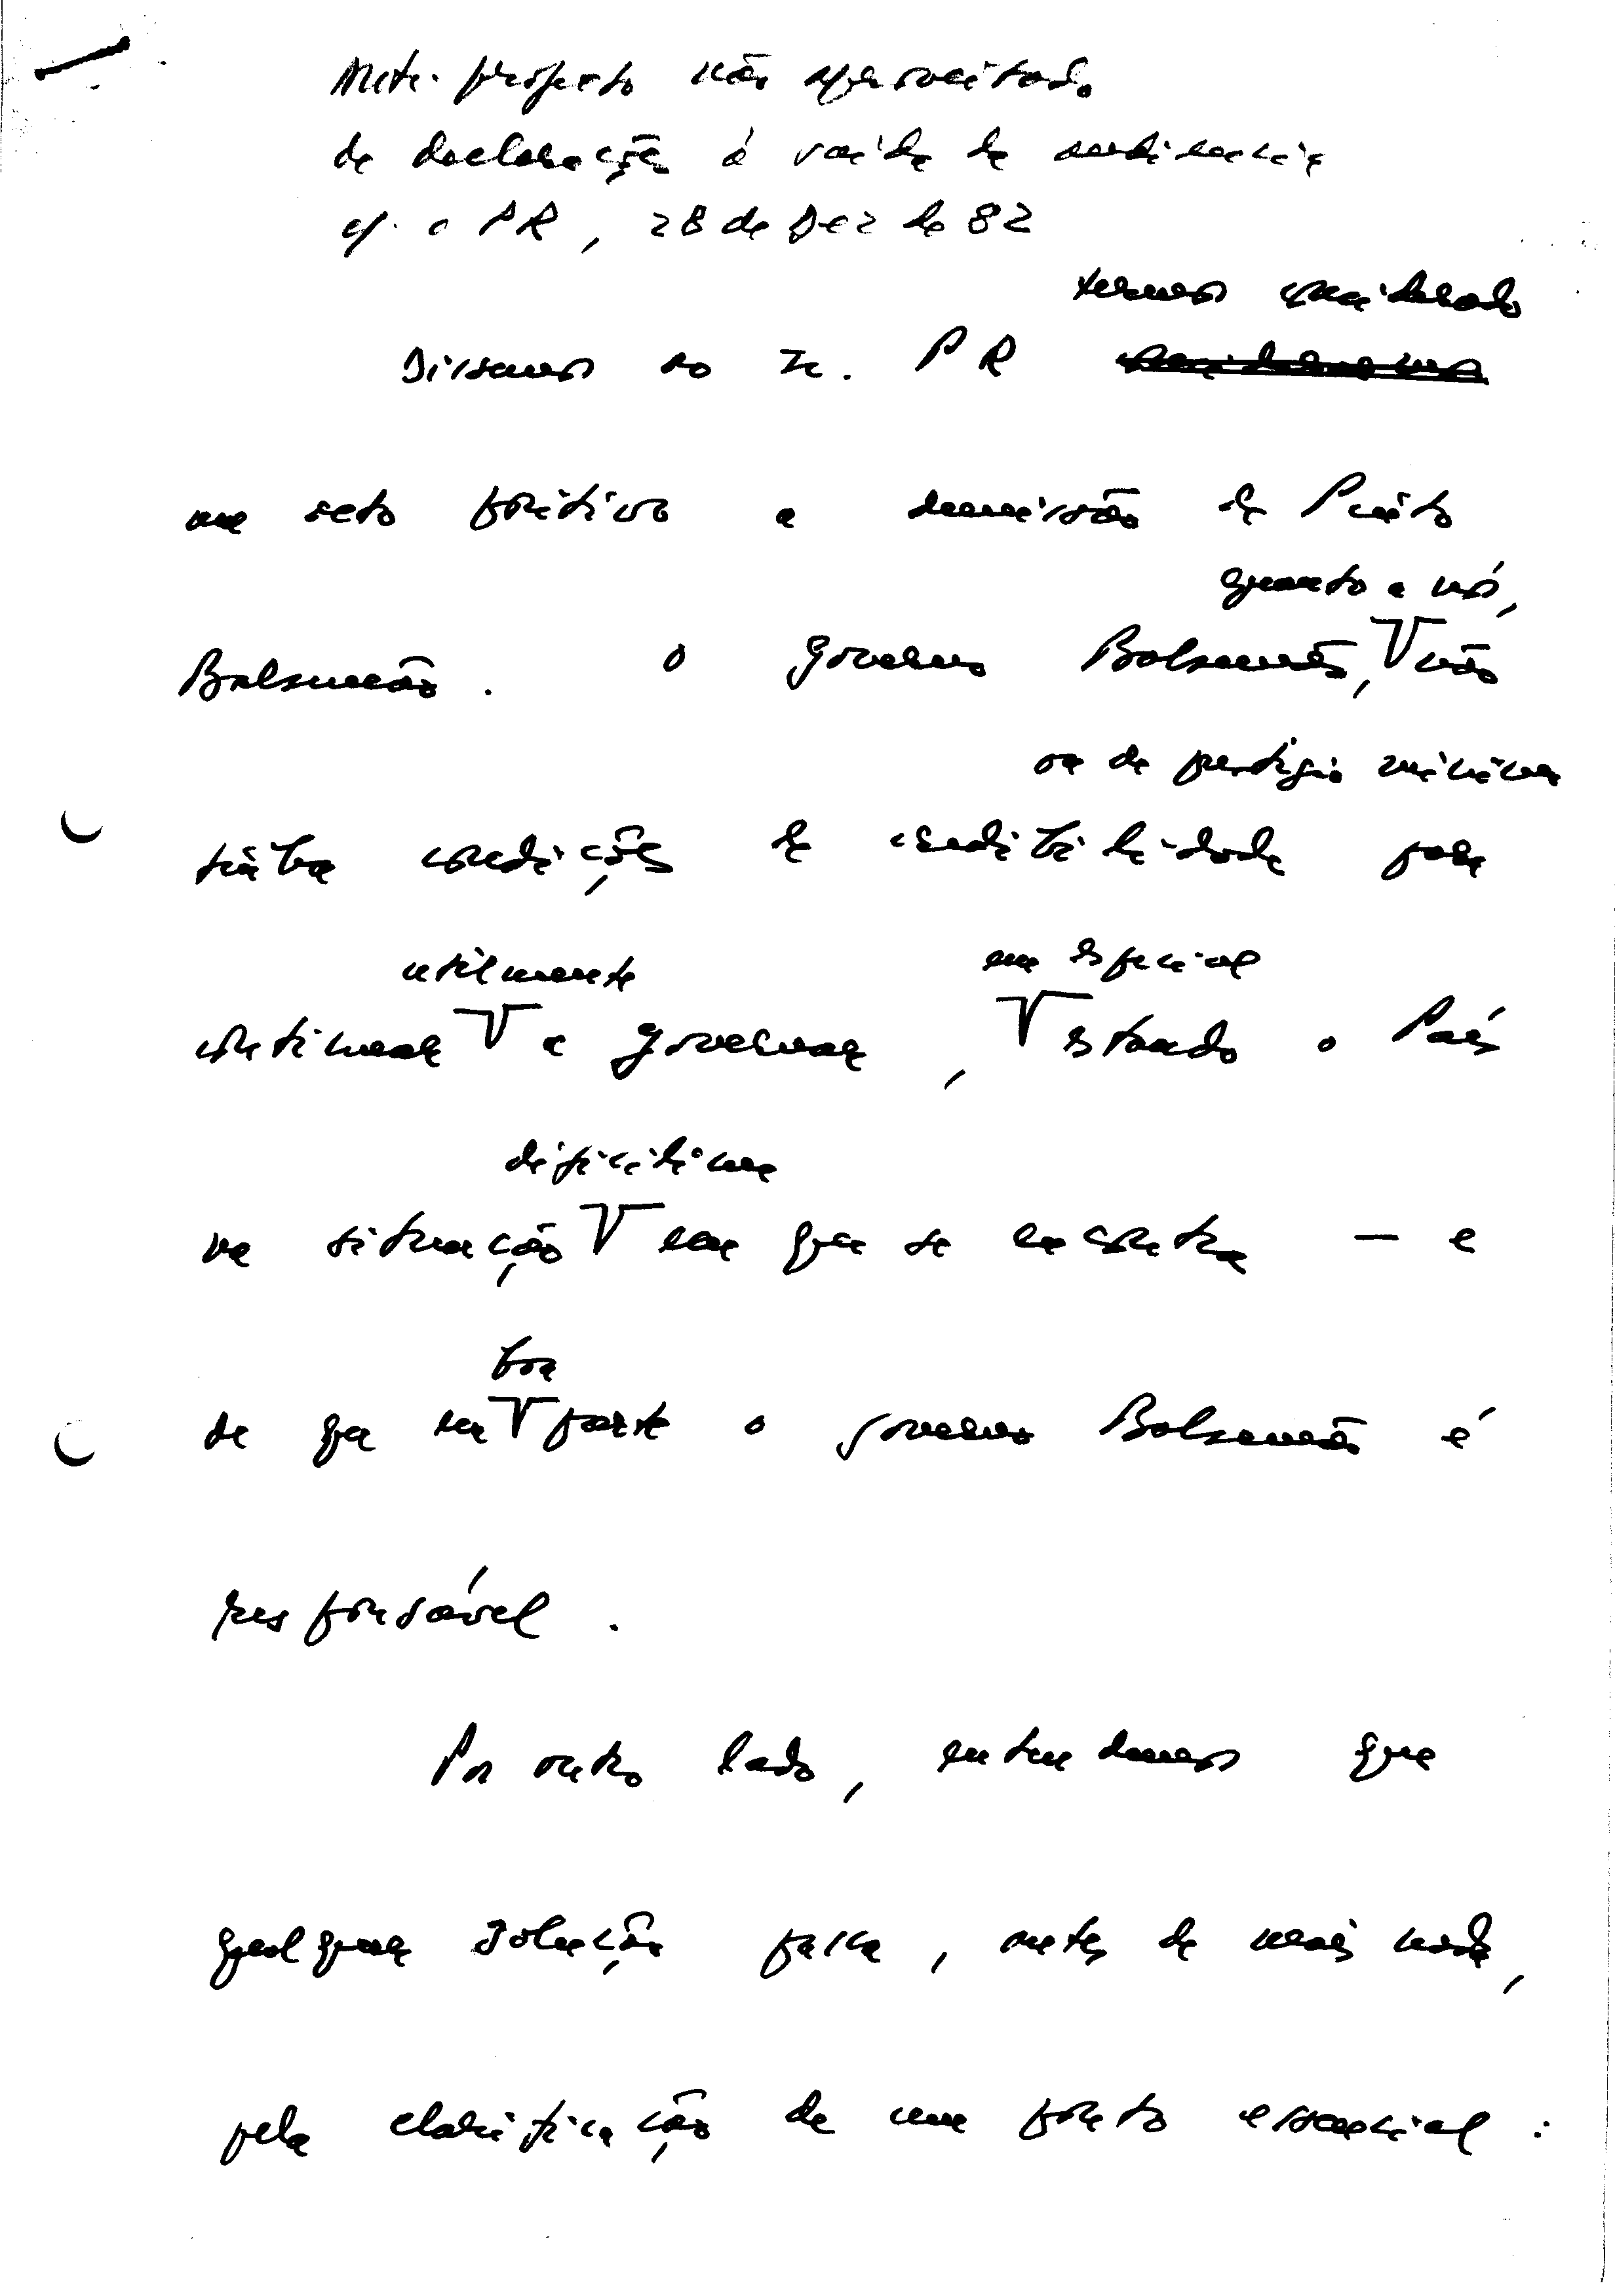 Ante-projecto não aproveitado
de declaração à saída de audiência
c/. o PR, 28 de Dez de 82
termos considerado
Dissemos ao Sr. PR consideramos
um acto positivo a demissão de Pinto
quanto a nós,
Balsemão. O governo Balsemão, não
ou de prestígio mínimo
tinha condições de credibilidade para
utilmente em especial
continuar a governar, estando o País
dificílima
na situação em que se encontra — e
boa
de que em parte o governo Balsemão é
responsável.
Por outro lado, entendemos que
qualquer solução passa, antes de mais nada,
pela clarificação de um ponto essencial :